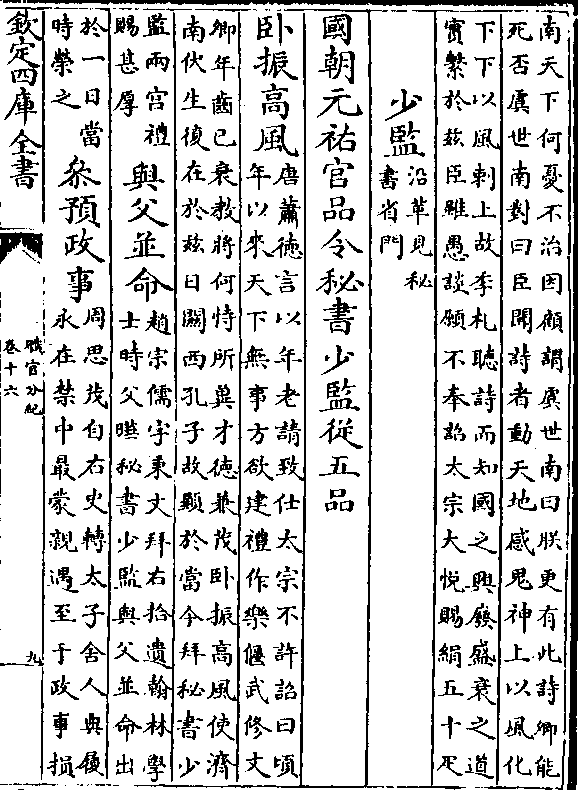 南天下何憂不治因顧謂虞世南曰朕更有此詩卿能
死否虞世南對曰臣聞詩者動天地感鬼神上以風化
下下以風刺上故季札聽詩而知國之興廢盛衰之道
寔繫於兹臣雖愚談願不奉詔太宗大悅賜絹五十疋
少監
沿革見秘
書省門
國朝元祐官品令秘書少監從五品
卧振高風
唐蕭德言以年老請致仕太宗不許詔曰頃
年以來天下無事方欲建禮作樂偃武修文
卿年齒已衰教將何恃所冀才德兼茂卧振高風使濟
南伏生復在於兹日關西孔子故顯於當今拜秘書少
監兩宫禮
賜甚厚
與父並命
趙宗儒字秉文拜右拾遺翰林學
士時父曄秘書少監與父並命出
於一日當
時榮之
叅預政事
周思茂自右史轉太子舍人與履
永在禁中最蒙親遇至于政事損
欽定四庫全書
職官分紀
卷十六
九